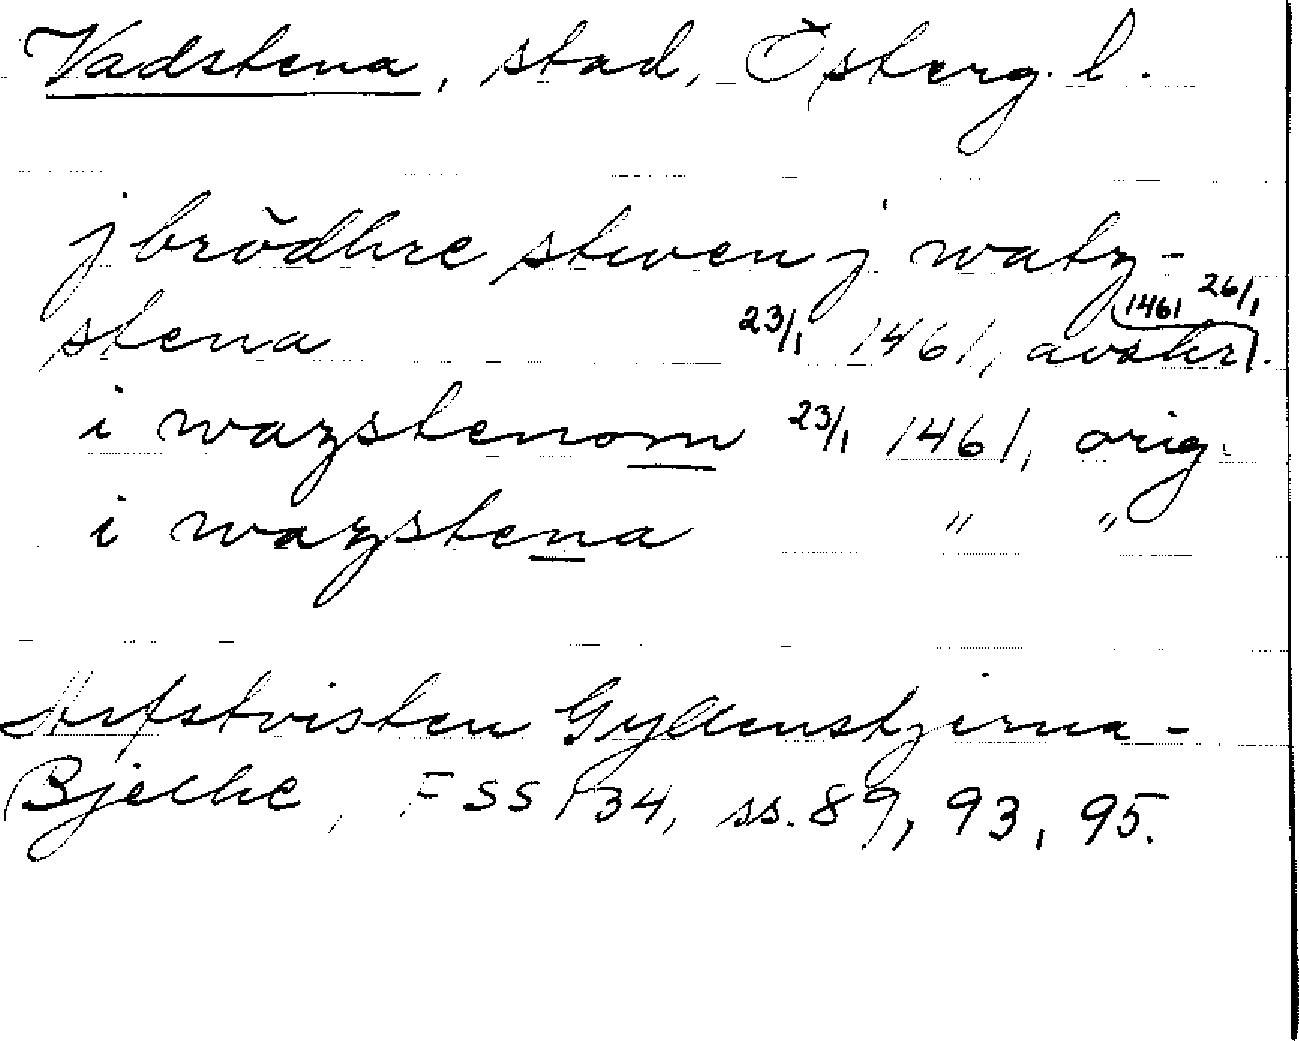 Vadstena, stad, Österg. l.
j brödhre stwen j watz-
stena 23/1 1461, avskr. 1461 26/1
i wazstenom 23/1 1461, orig.
i wazstena " "
Arfstvisten Gyllenstjerna-
Bjelke, FSS 134, ss. 89, 93, 95.